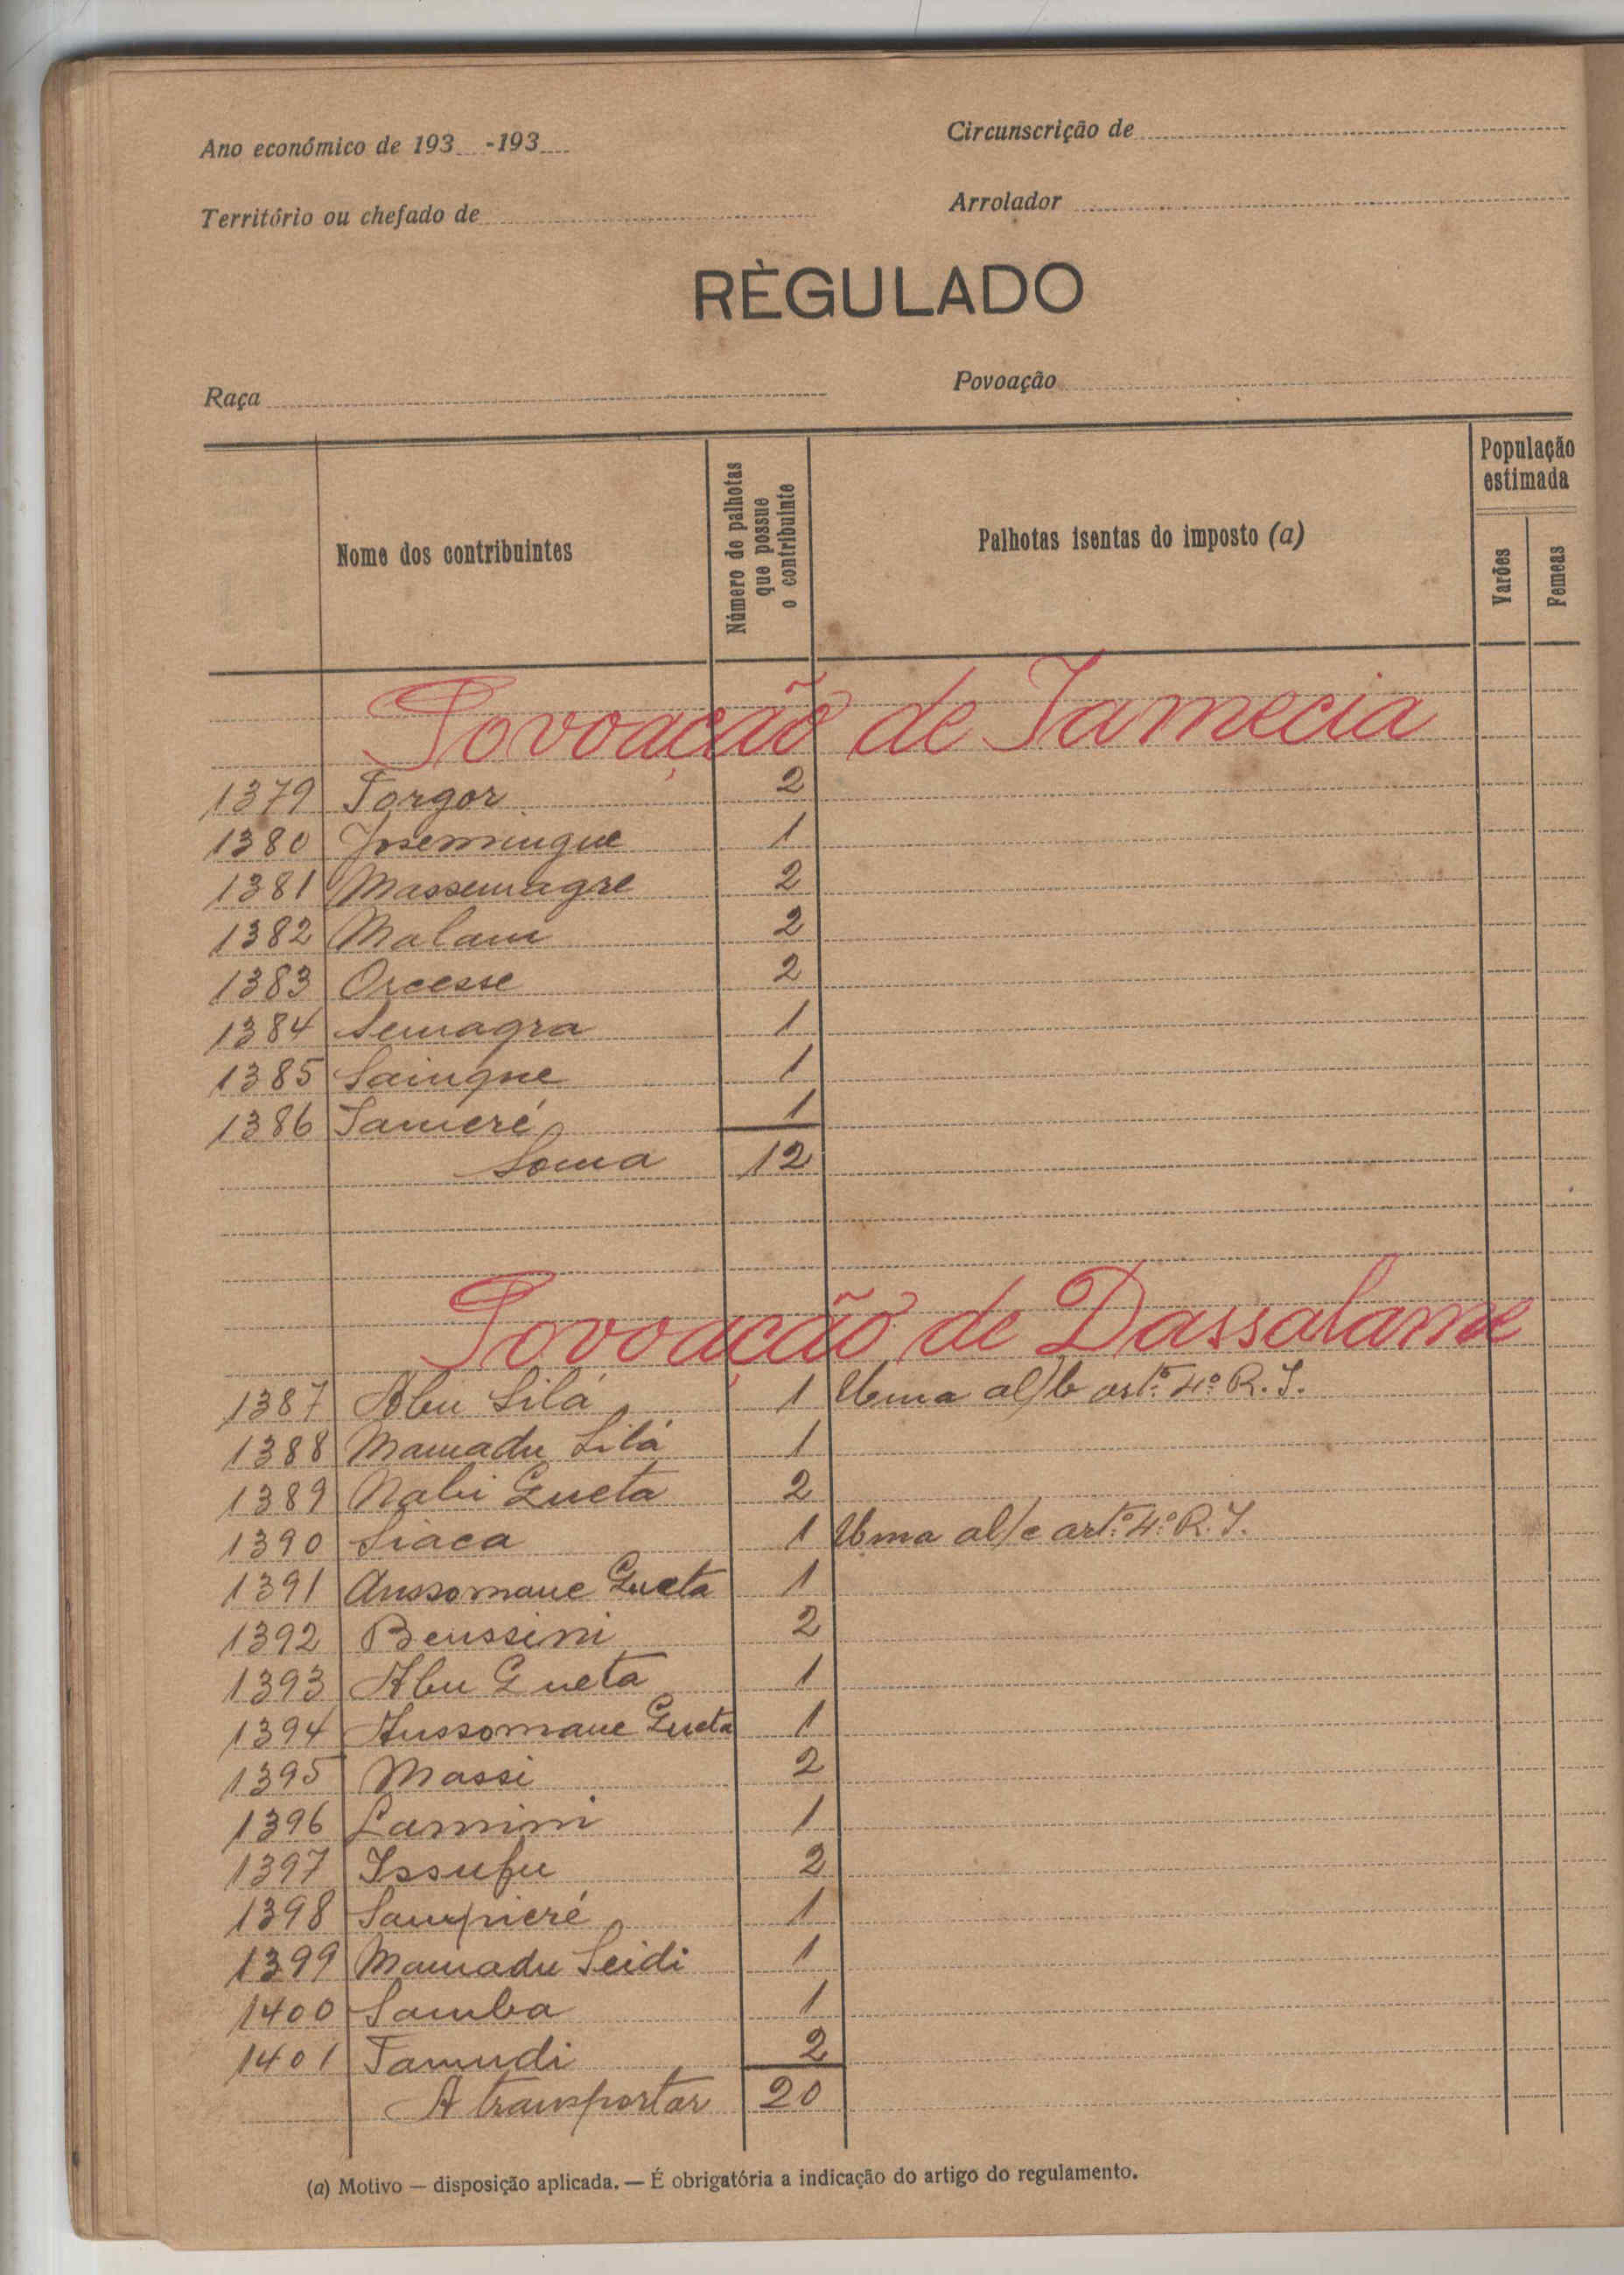 Ano económico de 193 -193
Circunscrição de
Território ou chefado de
Arrolador
RÈGULADO
Raça
Povoação
Nome dos contribuintes
Número de palhotas que possue o contribuinte
Palhotas isentas do imposto (a)
População estimada
Varões
Femeas
Povoação de Tamecia
1379 Torgor 2
1380 Josemingue 1
1381 Massemagre 2
1382 Malam 2
1383 Orcesse 2
1384 Semagra 1
1385 Saingue 1
1386 Tameré 1
Soma 12
Povoação de Dassalame
1387 Abu Silá 1 Uma al/b artº. 4º R. I.
1388 Mamadu Silá 1
1389 Nabi Gueta 2
1390 Siaca 1 Uma al/c artº. 4º R. I.
1391 Anssomane Gueta 1
1392 Benssini 2
1393 Abu Gueta 1
1394 Anssomane Gueta 1
1395 Massi 2
1396 Lamini 1
1397 Issufu 2
1398 1
1399 Mamadu Seidi 1
1400 Samba 1
1401 Tamudi 2
A transportar 20
(a) Motivo — disposição aplicada. — É obrigatória a indicação do artigo do regulamento.